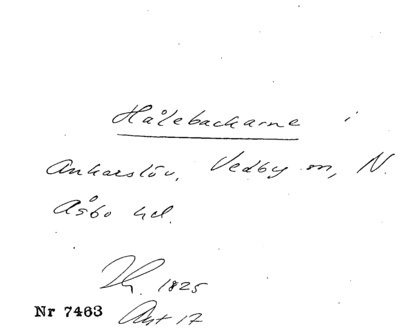 Hålebackarne i
Ankarslöv, Vedby sn, N.
Åsbo hd.
1825
Nr 7463 Akt 17